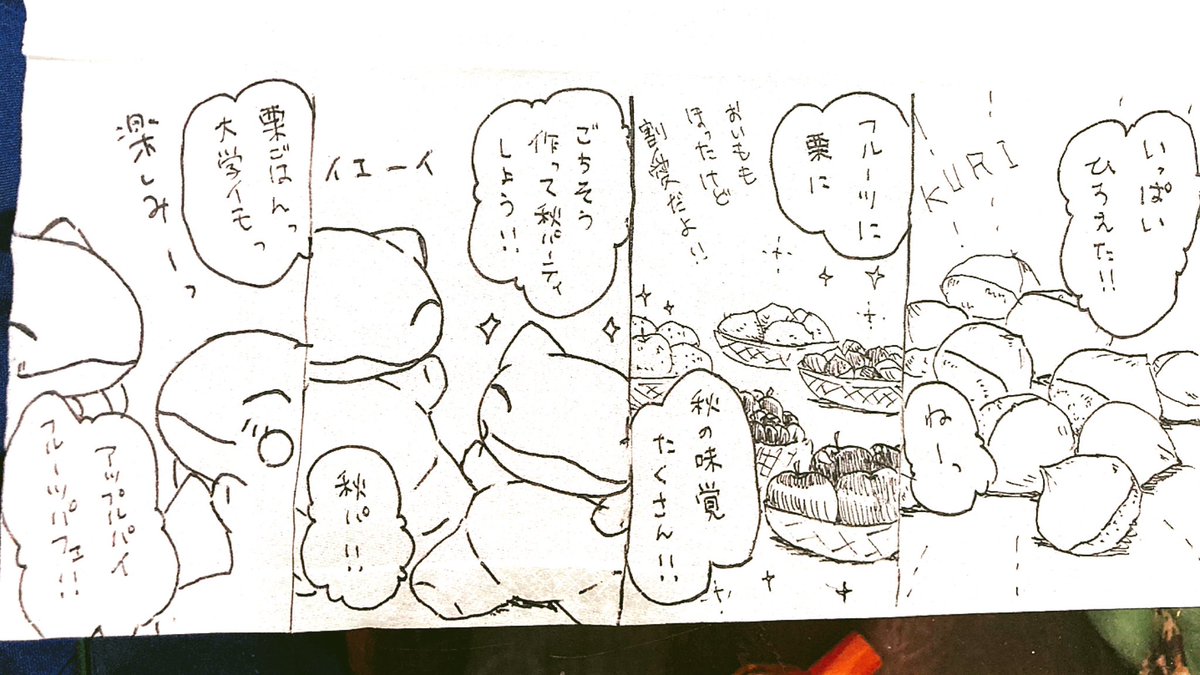 いっぱい
ひろえた!!
KURI
ねーっ
フルーツに
栗に
おいもも
ほったけど
割愛だよ!!
秋の味覚
たくさん!!
ごちそう
作って秋パーティ
しよう!!
イエーイ
秋パ!!
栗ごはんっ
大学イモっ
楽しみーっ
アップルパイ
フルーツパフェ!!